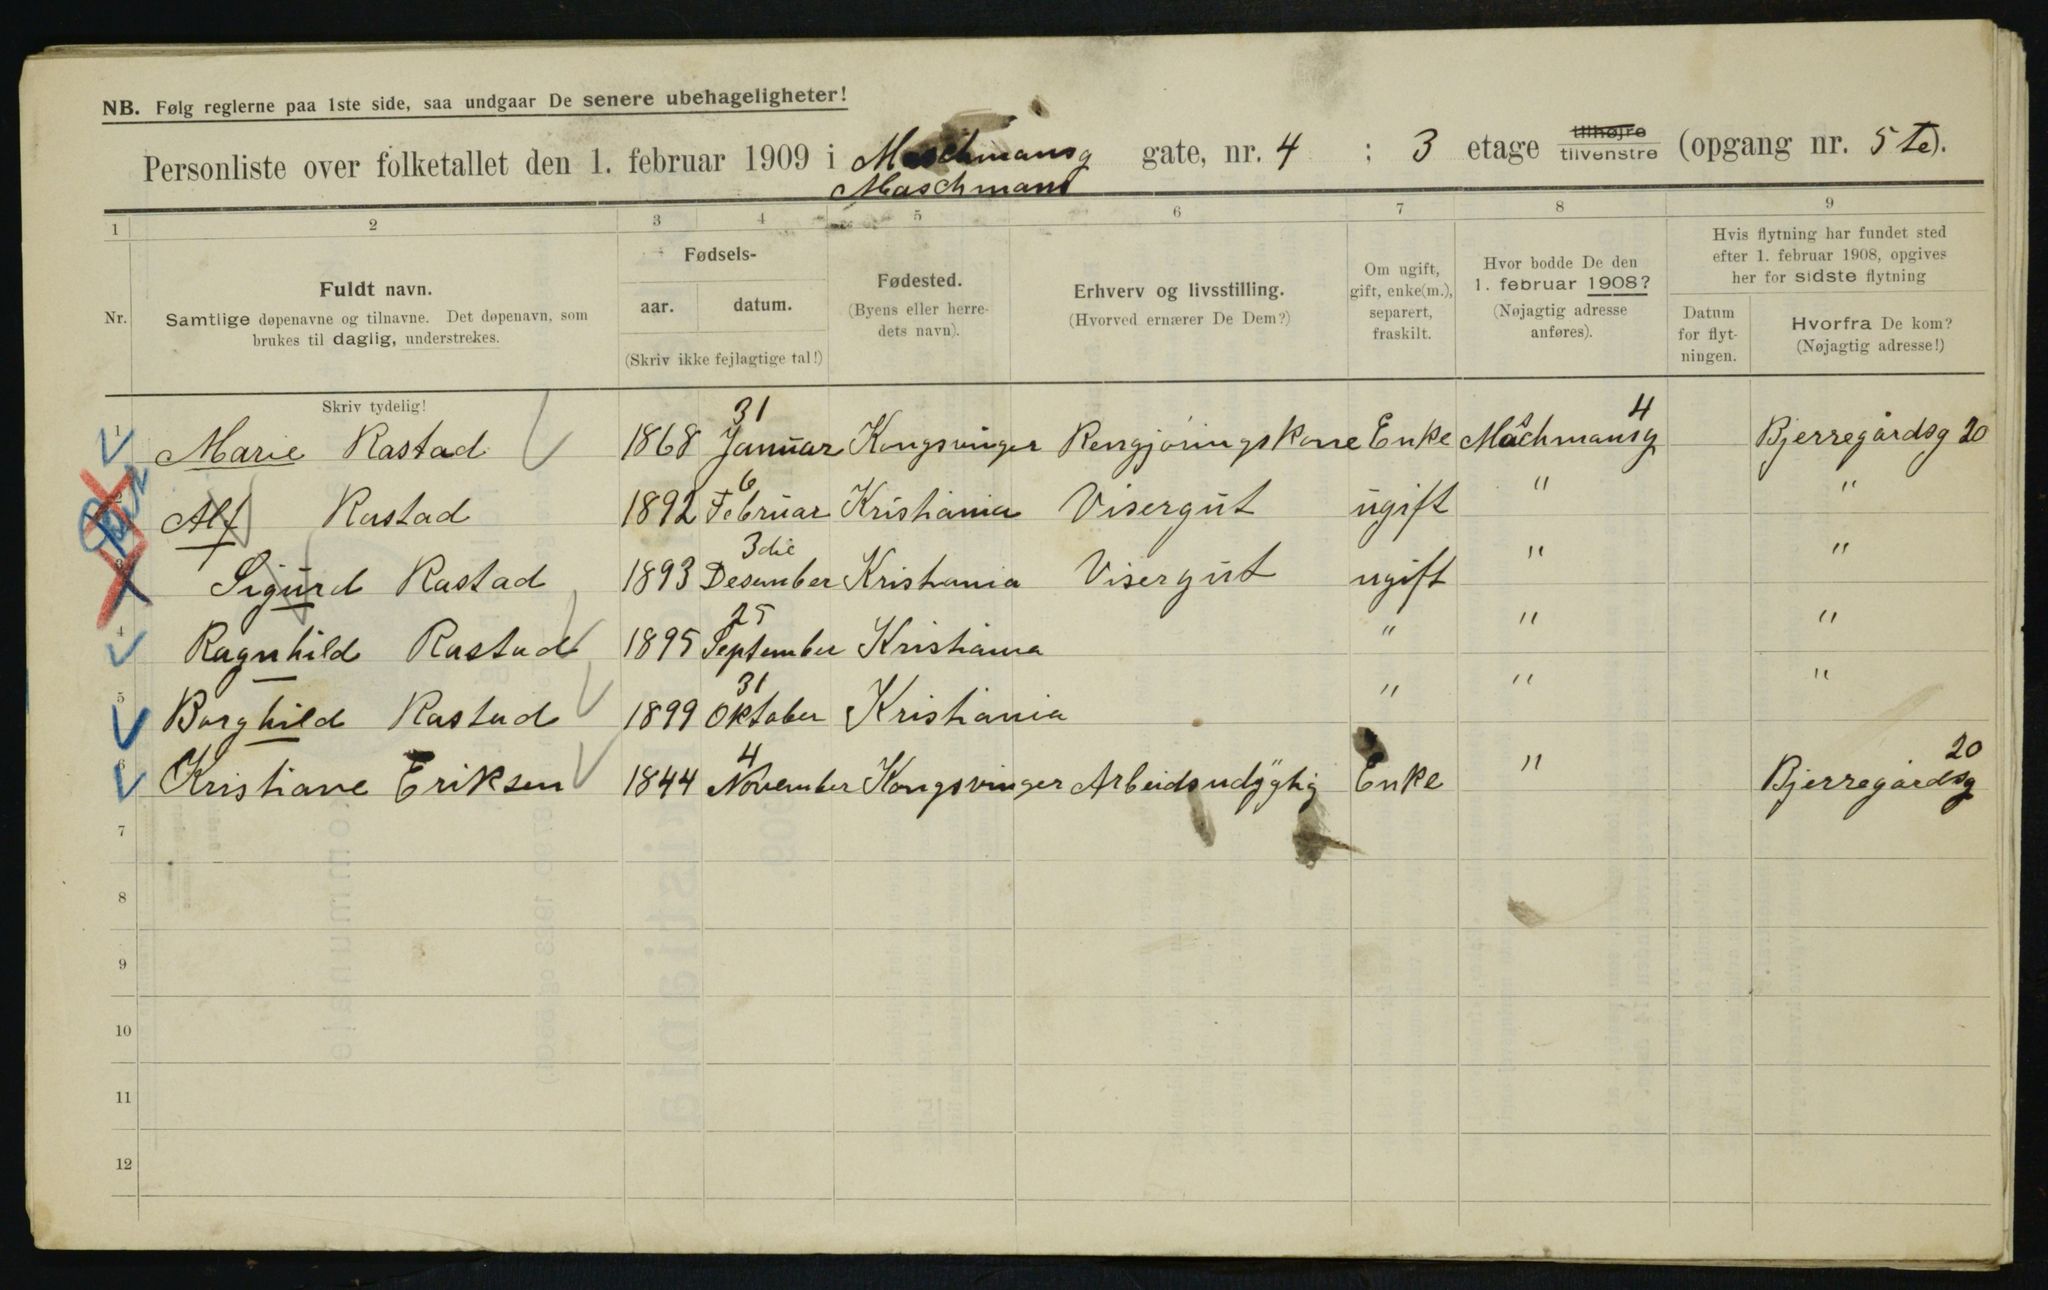 NB. Følg reglerne paa 1ste side, saa undgaar De senere ubehageligheter!
Personliste over folketallet den 1. februar 1909 i Maschmansg gate, nr. 4 ; 3 etage tilhøjre tilvenstre (opgang nr. 5te).
Maschmans
1 2 3 4 5 6 7 8 9
Nr.
Fuldt navn.
Samtlige døpenavne og tilnavne. Det døpenavn, som
brukes til daglig, understrekes.
Fødsels-
aar. datum.
(Skriv ikke fejlagtige tal!)
Fødested.
(Byens eller herre-
dets navn).
Erhverv og livsstilling.
(Hvorved ernærer De Dem?)
Om ugift,
gift, enke(m.),
separert,
fraskilt.
Hvor bodde De den
1. februar 1908?
(Nøjagtig adresse
anføres).
Hvis flytning har fundet sted
efter 1. februar 1908, opgives
her for sidste flytning
Datum
for flyt-
ningen.
Hvorfra De kom?
(Nøjagtig adresse!)
Skriv tydelig!
1 Marie Rastad 1868 31 Januar Kongsvinger Rengjøringskone Enke Maschmansg 4 Bjerregårdsg 20
2 Alf Rastad 1892 6 Februar Kristiania Visergut ugift " "
3 Sigurd Rastad 1893 3die Desember Kristiania Visergut ugift " "
4 Ragnhild Rastad 1895 25 September Kristiania " " "
5 Borghild Rastad 1899 31 Oktober Kristiania " " "
6 Kristiane Eriksen 1844 4 November Kongsvinger Arbeidsudygtig Enke " Bjerregårdsg 20
7
8
9
10
11
12